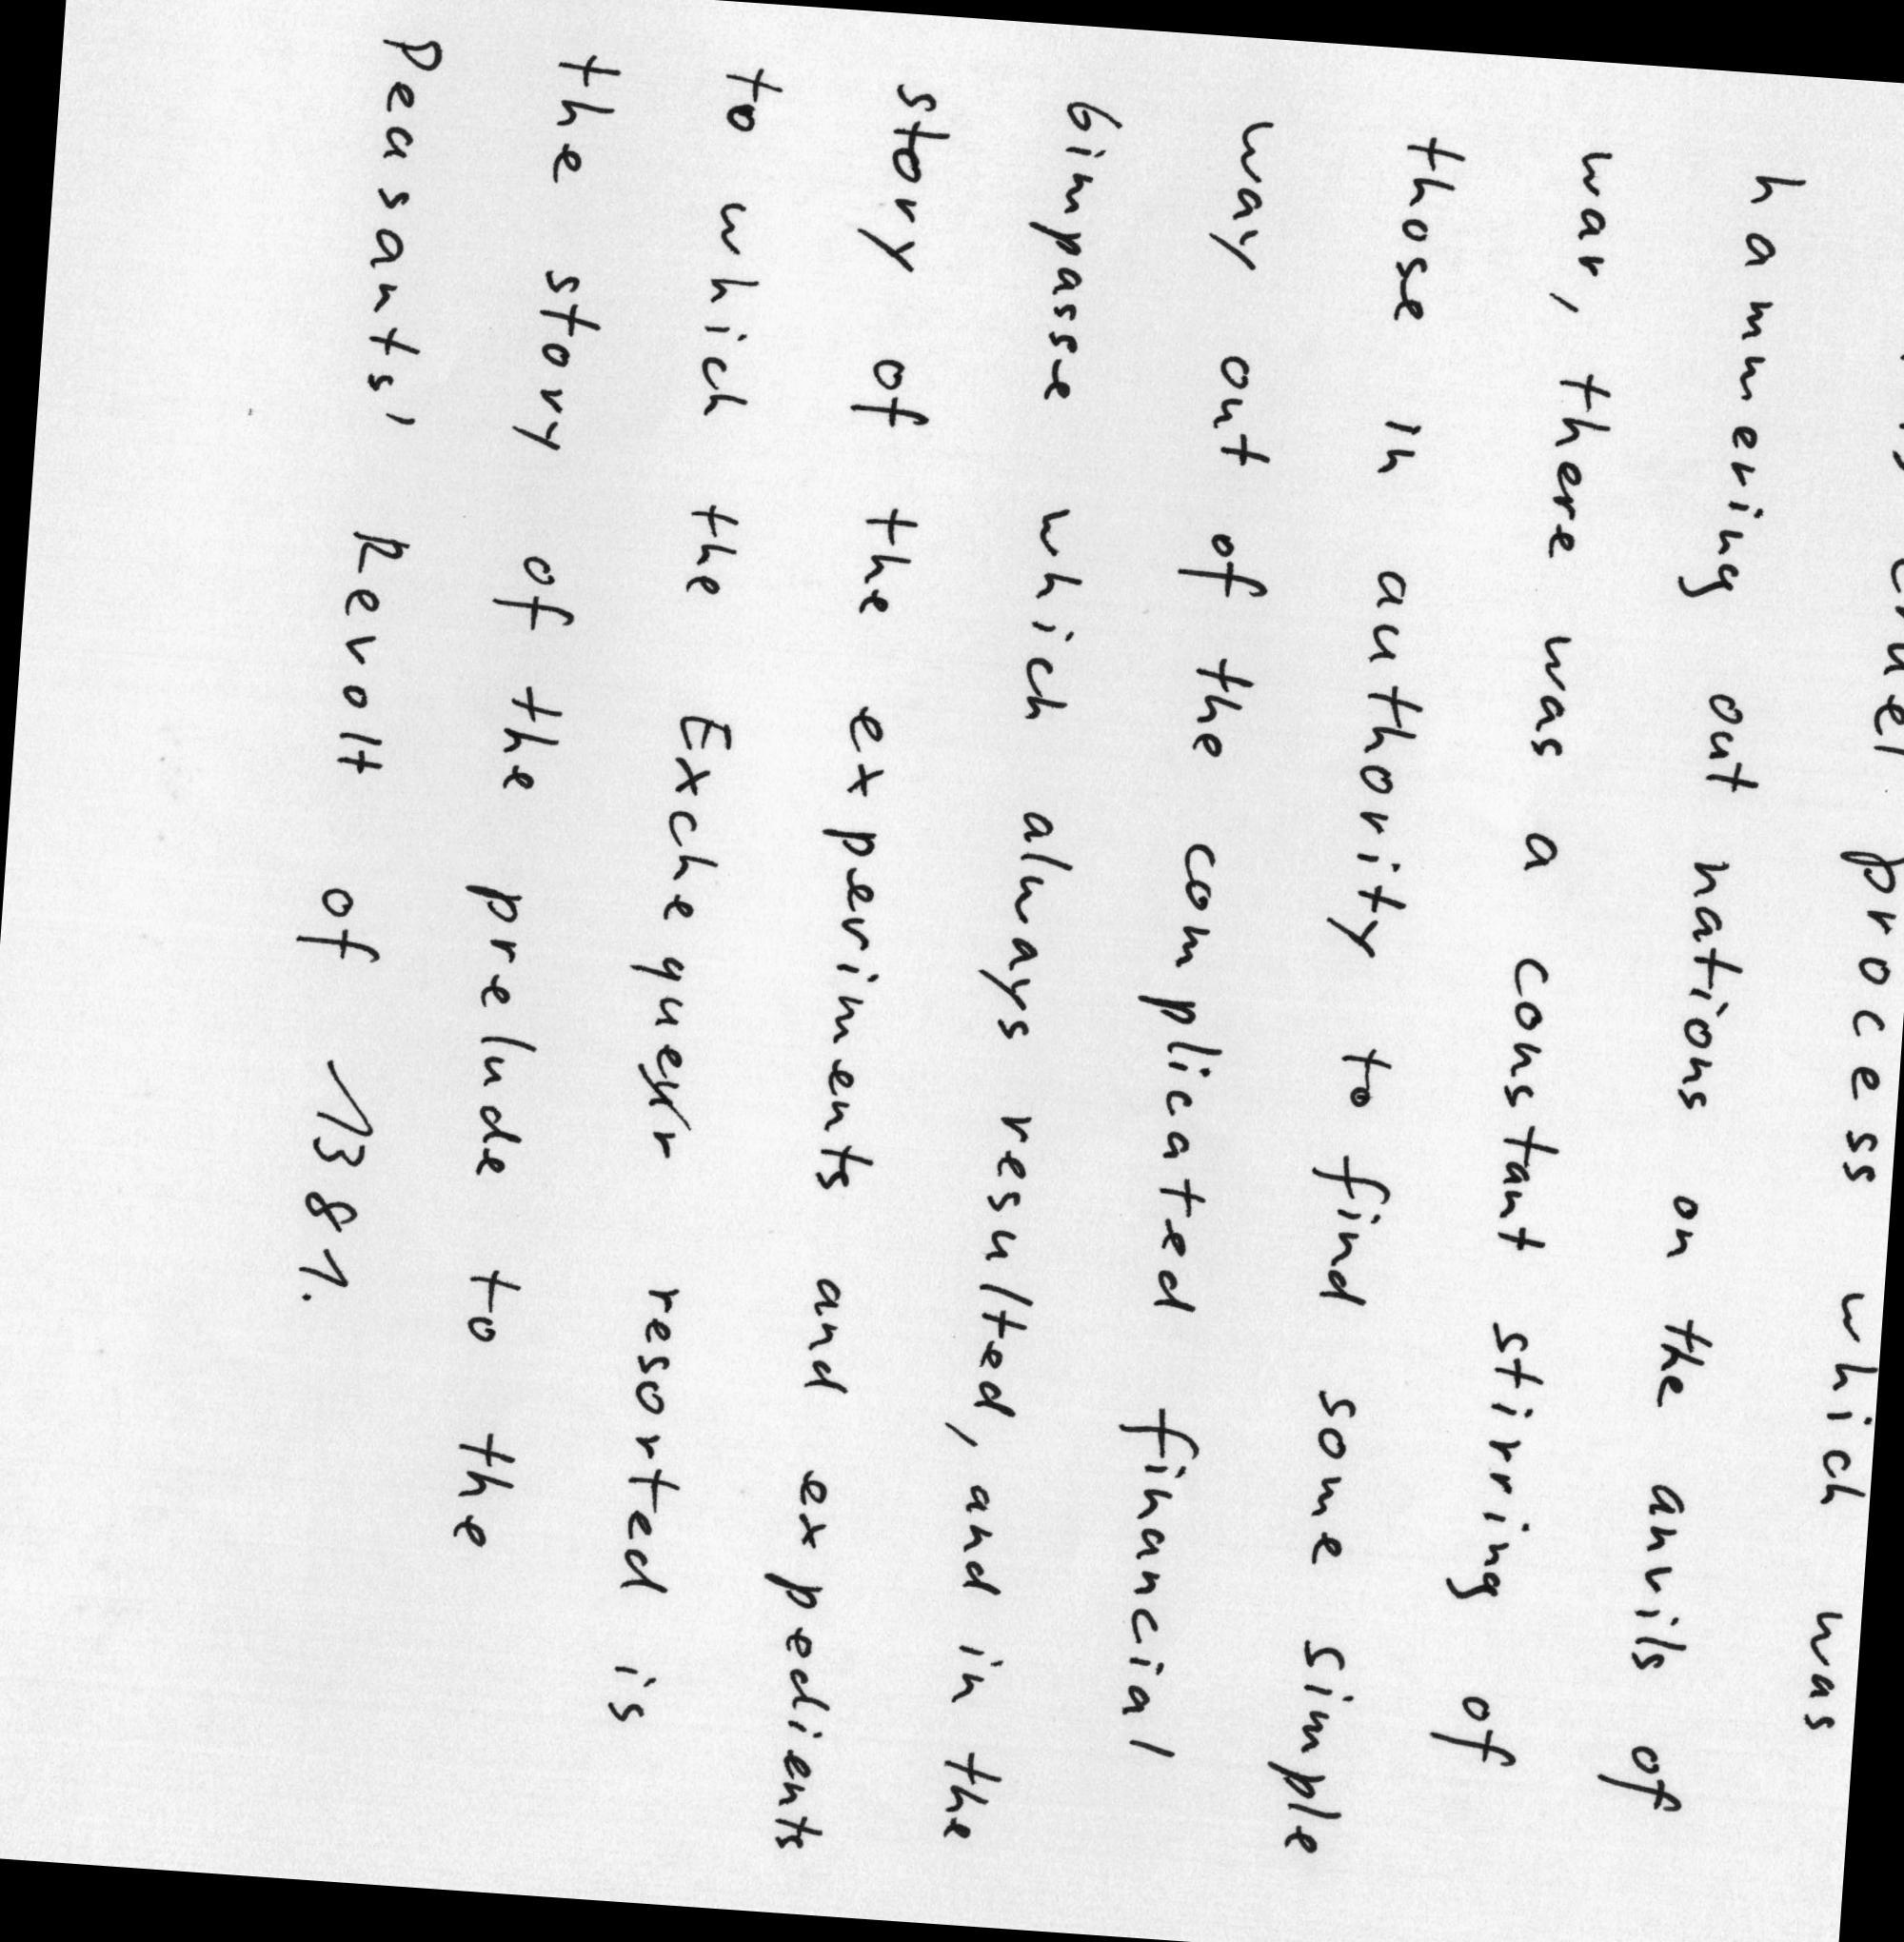 cruel process which was
hammering out nations on the anvils of
war, there was a constant stirring of
those in authority to find some simple
way out of the complicated financial
6impasse which always resulted, and in the
story of the experiments and expedients
to which the Exchequer resorted is
the story of the prelude to the
Peasants' Revolt of 1381.